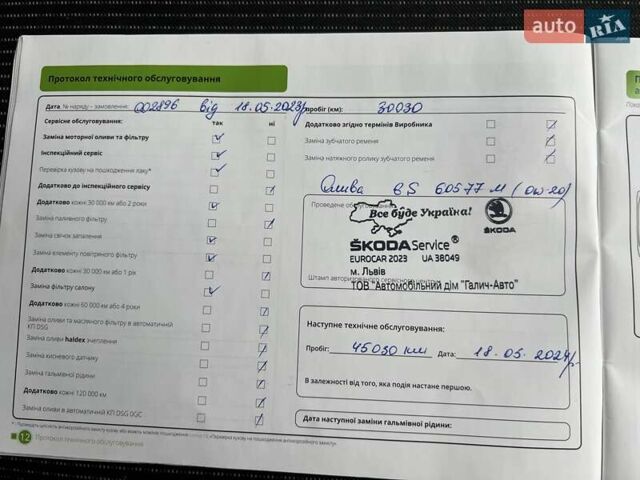 auto RIA
Протокол технічного обслуговування
Дата, № наряду – замовлення: 002896 від 18.05.2023р пробіг (км): 30030
Сервісне обслуговування: так ні
Заміна моторної оливи та фільтру
Інспекційний сервіс
Перевірка кузову на пошкодження лаку*
Додатково до інспекційного сервісу
Додатково кожні 30 000 км або 2 роки
Заміна паливного фільтру
Заміна свічок запалення
Заміна елементу повітряного фільтру
Додатково кожні 30 000 км або 1 рік
Заміна фільтру салону
Додатково кожні 60 000 км або 4 роки
Заміна оливи та масляного фільтру в автоматичній
КП DSG
Заміна оливи haldex зчеплення
Заміна кисневого датчику
Заміна гальмівної рідини
Додатково кожні 120 000 км
Заміна оливи в автоматичній КП DSG 0GC
12 Протокол технічного обслуговування
Додатково згідно термінів Виробника
Заміна зубчатого ременя
Заміна натяжного ролику зубчатого ременя
Олива вS 60577 М (0w-20)
Проведене обслуговування
Все буде Україна!
ŠKODA
ŠKODA Service®
EUROCAR 2023 UA 38049
м. Львів
Штамп авторизованого сервісного
ТОВ "Автомобільний дім "Галич-Авто"
Наступне технічне обслуговування:
Пробіг: 45030 км Дата: 18.05.2024р
В залежності від того, яка подія настане першою.
Дата наступної заміни гальмівної рідини: